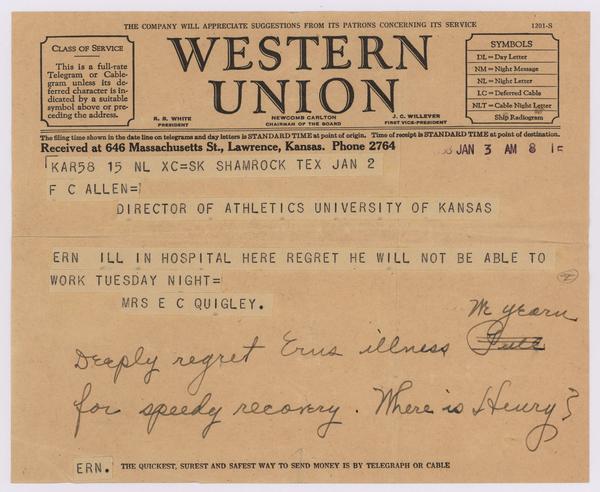 THE COMPANY WILL APPRECIATE SUGGESTIONS FROM ITS PATRONS CONCERNING ITS SERVICE
1201-S
CLASS OF SERVICE
This is a full-rate
Telegram or Cable-
gram unless its de-
ferred character is in-
dicated by a suitable
symbol above or pre-
ceding the address.
WESTERN
UNION
R. B. WHITE
PRESIDENT
NEWCOMB CARLTON
CHAIRMAN OF THE BOARD
J. C. WILLEVER
FIRST VICE-PRESIDENT
SYMBOLS
DL = Day Letter
NM = Night Message
NL = Night Letter
LC = Deferred Cable
NLT = Cable Night Letter
Ship Radiogram
The filing time shown in the date line on telegrams and day letters is STANDARD TIME at point of origin. Time of receipt is STANDARD TIME at point of destination.
Received at 646 Massachusetts St., Lawrence, Kansas. Phone 2764
JAN 3 AM 8
KAR58 15 NL XC=SK SHAMROCK TEX JAN 2
F C ALLEN=
DIRECTOR OF ATHLETICS UNIVERSITY OF KANSAS
ERN ILL IN HOSPITAL HERE REGRET HE WILL NOT BE ABLE TO
WORK TUESDAY NIGHT=
MRS E C QUIGLEY.
We yearn
Deeply regret Erns illness
for speedy recovery. Where is Henry?
ERN.
THE QUICKEST, SUREST AND SAFEST WAY TO SEND MONEY IS BY TELEGRAPH OR CABLE